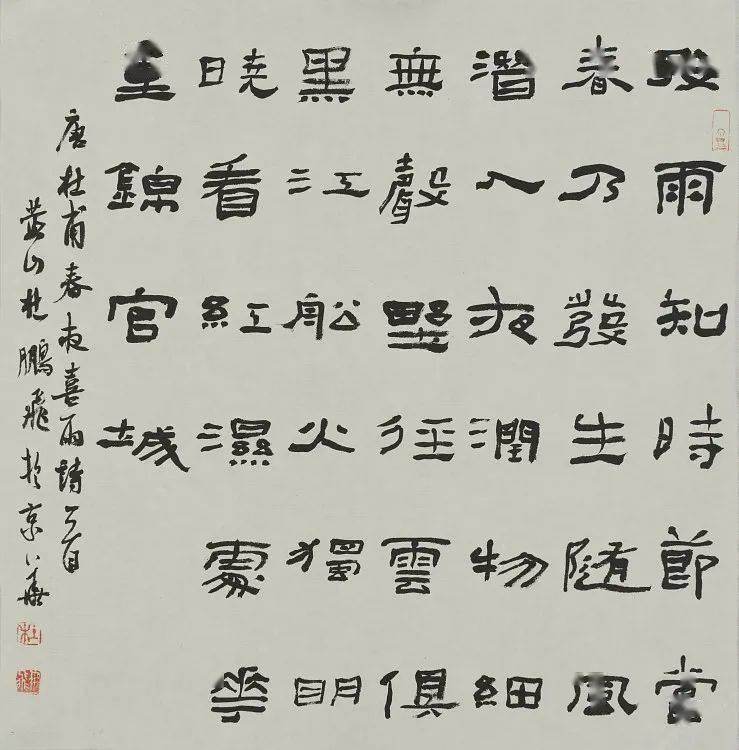 好雨知時節當
春乃發生隨風
潛入夜潤物細
無聲野徑雲俱
黑江船火獨明
曉看紅濕處花
重錦官城
唐杜甫春夜喜雨詩一首
黃山杜鵬飛於京華